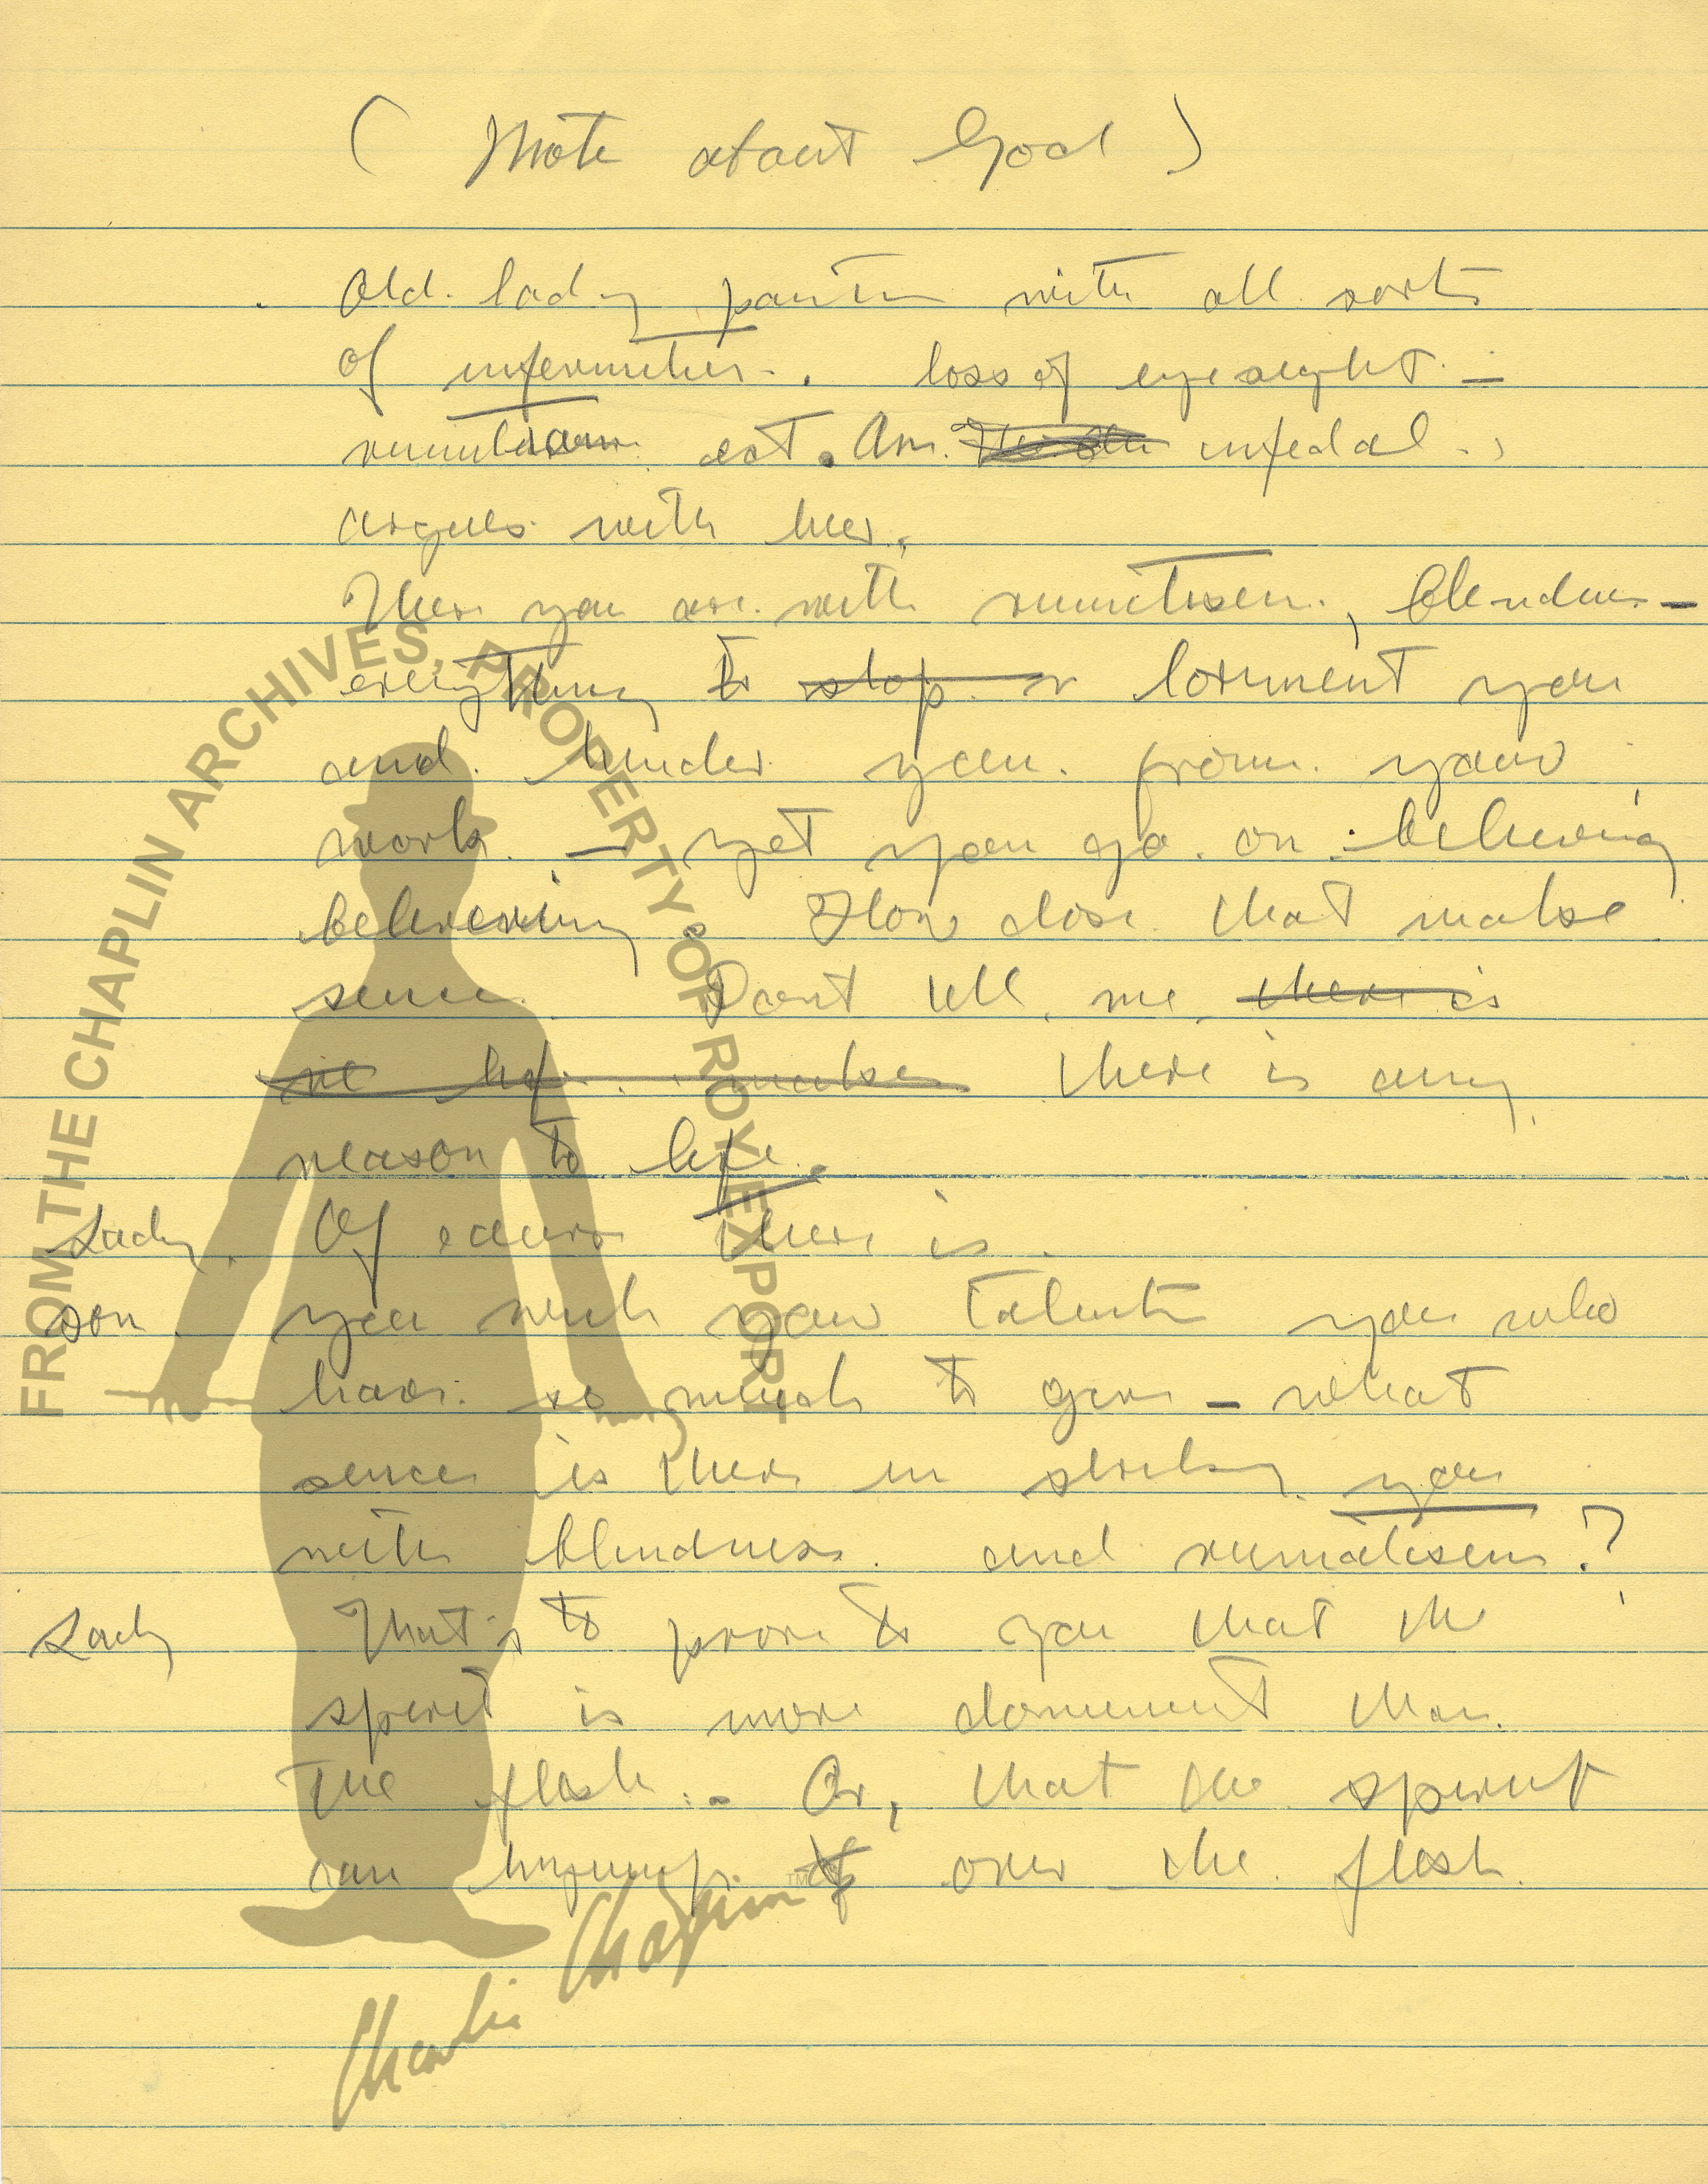 ( Note about God )
Old lady painter with all sorts
of infermities. loss of eyesight —
ect. An infedal,
argues with her.
Here you are with rumitisem, blindness —
everything to stop or torment you
and hinder you from your
work. — yet you go on believing
believing How dose that make
sence. Dont tell me there is
no makes there is any
reason to life.
Lady. Of cours there is.
son. you with your talents you who
have so much to give — what
sence is there in you
with blindness and rumatisem?
Lady That's to prove to you that the
spirit is more domenent than
the flesh. Or, that the spirit
can over the flesh.
FROM THE CHAPLIN ARCHIVES, PROPERTY OF ROY EXPORT
Charlie Chaplin TM